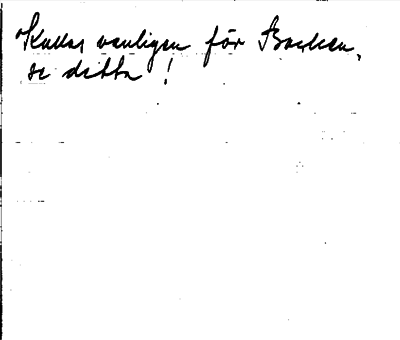 Kallas vanligen för Backen,
se detta !